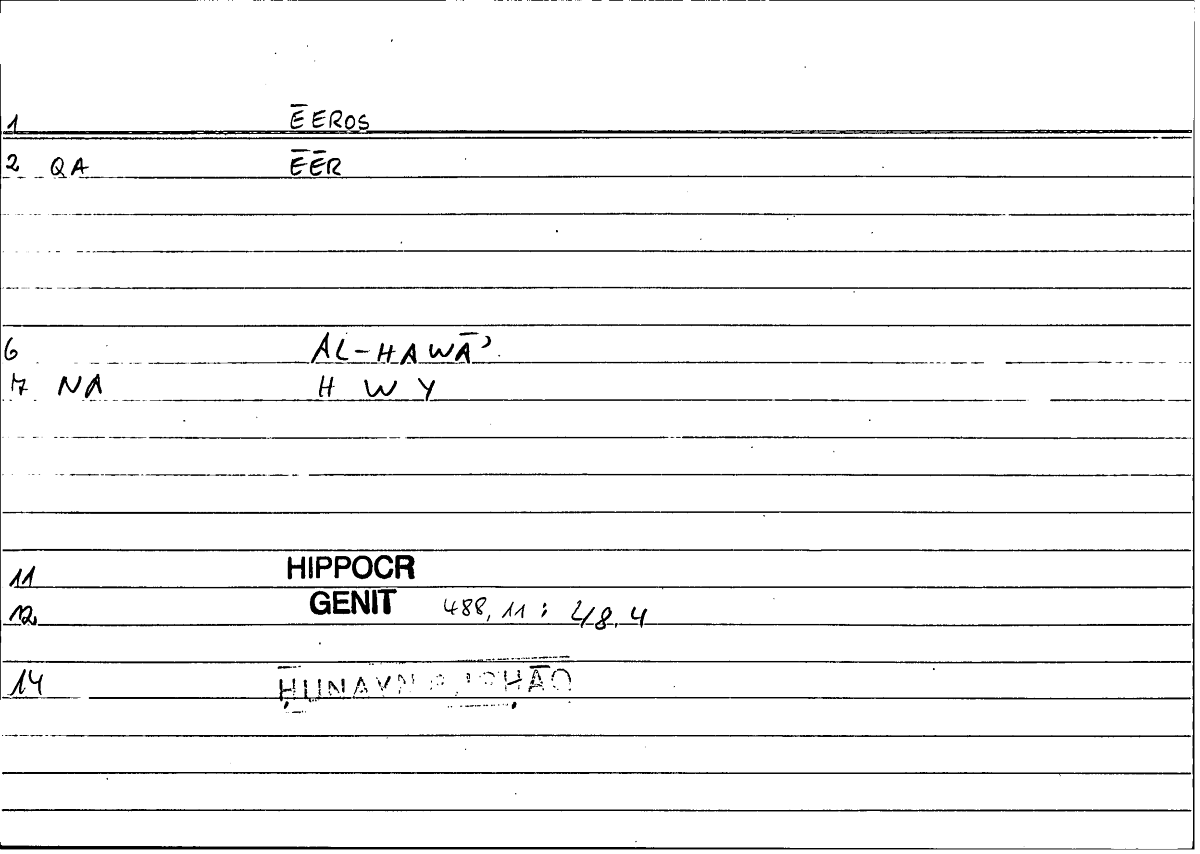 1 ĒEROS
2 QA ĒĒR
6 AL-HAWĀʾ
7 NA H W Y
11 HIPPOCR
12 GENIT 488, 11 : 48.4
14 ḤUNAYN B. ISḤĀQ